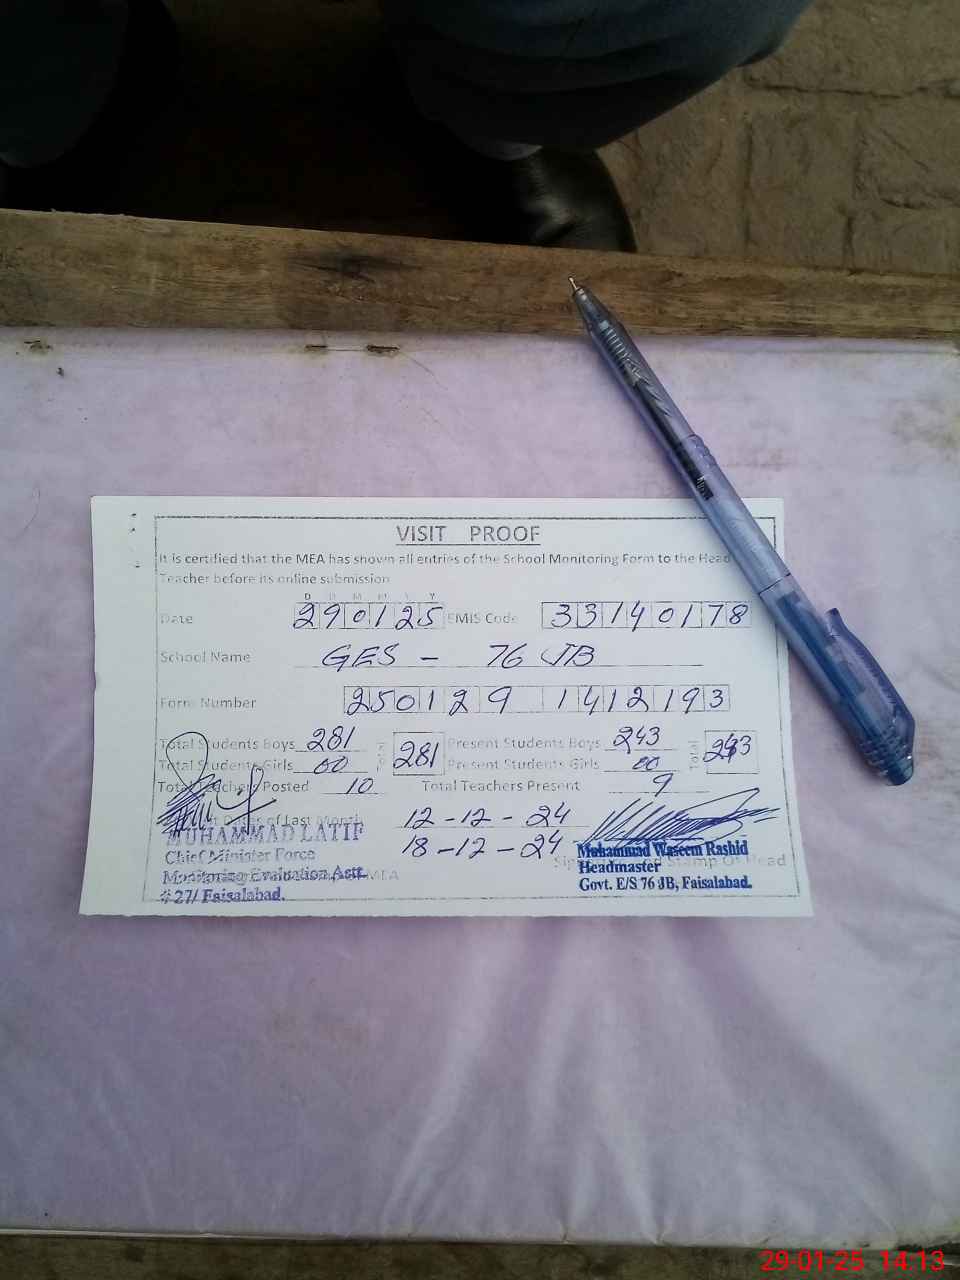 VISIT PROOF
It is certified that the MEA has shown all entries of the School Monitoring Form to the Head
Teacher before its online submission
D D M M Y Y
Date 290125 EMIS Code 33140178
School Name GES - 76 JB
Form Number 250129 1412193
Total Students Boys 281 Total 281 Present Students Boys 243 Total 243
Total Students Girls 00 Present Students Girls 00
Total Teachers Posted 10 Total Teachers Present 9
Dates of Last Month 12-12-24
18-12-24
MUHAMMAD LATIF
Chief Minister Force
Monitoring Evaluation Astt.
# 27/ Faisalabad.
MEA
Muhammad Waseem Rashid
Headmaster
Govt. E/S 76 JB, Faisalabad.
Stamp Of Head
29-01-25 14:13